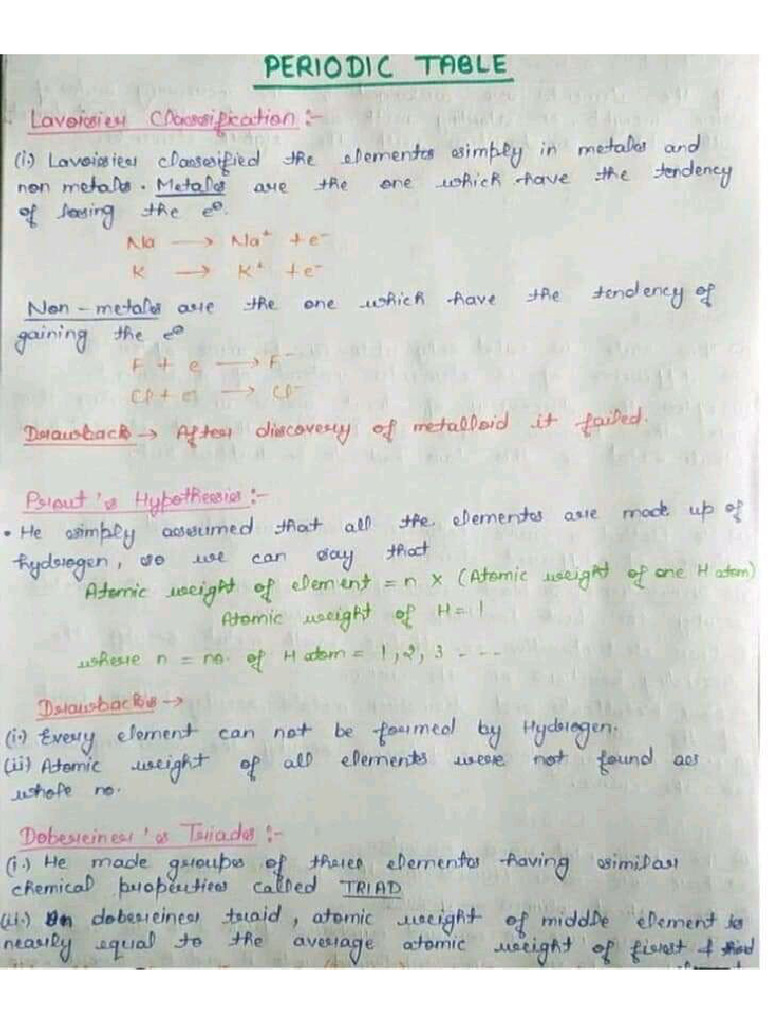 PERIODIC TABLE
Lavoisier Classification :-
(i.) Lavoisier classified the elements simply in metals and
non metals. Metals are the one which have the tendency
of losing the e⊖.
Na → Na⁺ + e⁻
K → K⁺ + e⁻
Non-metals are the one which have the tendency of
gaining the e⊖
F + e → F⁻
Cl + e → Cl⁻
Drawback → After discovery of metalloid it failed.
Prout's Hypothesis :-
• He simply assumed that all the elements are made up of
hydrogen, so we can say that
Atomic weight of element = n × (Atomic weight of one H atom)
Atomic weight of H = 1
where n = no. of H atom = 1, 2, 3 ----
Drawbacks →
(i.) Every element can not be formed by Hydrogen.
(ii) Atomic weight of all elements were not found as
whole no.
Dobereiner's Triads :-
(i.) He made groups of three elements having similar
chemical properties called TRIAD
(ii.) In dobereiner traid, atomic weight of middle element is
nearly equal to the average atomic weight of first &